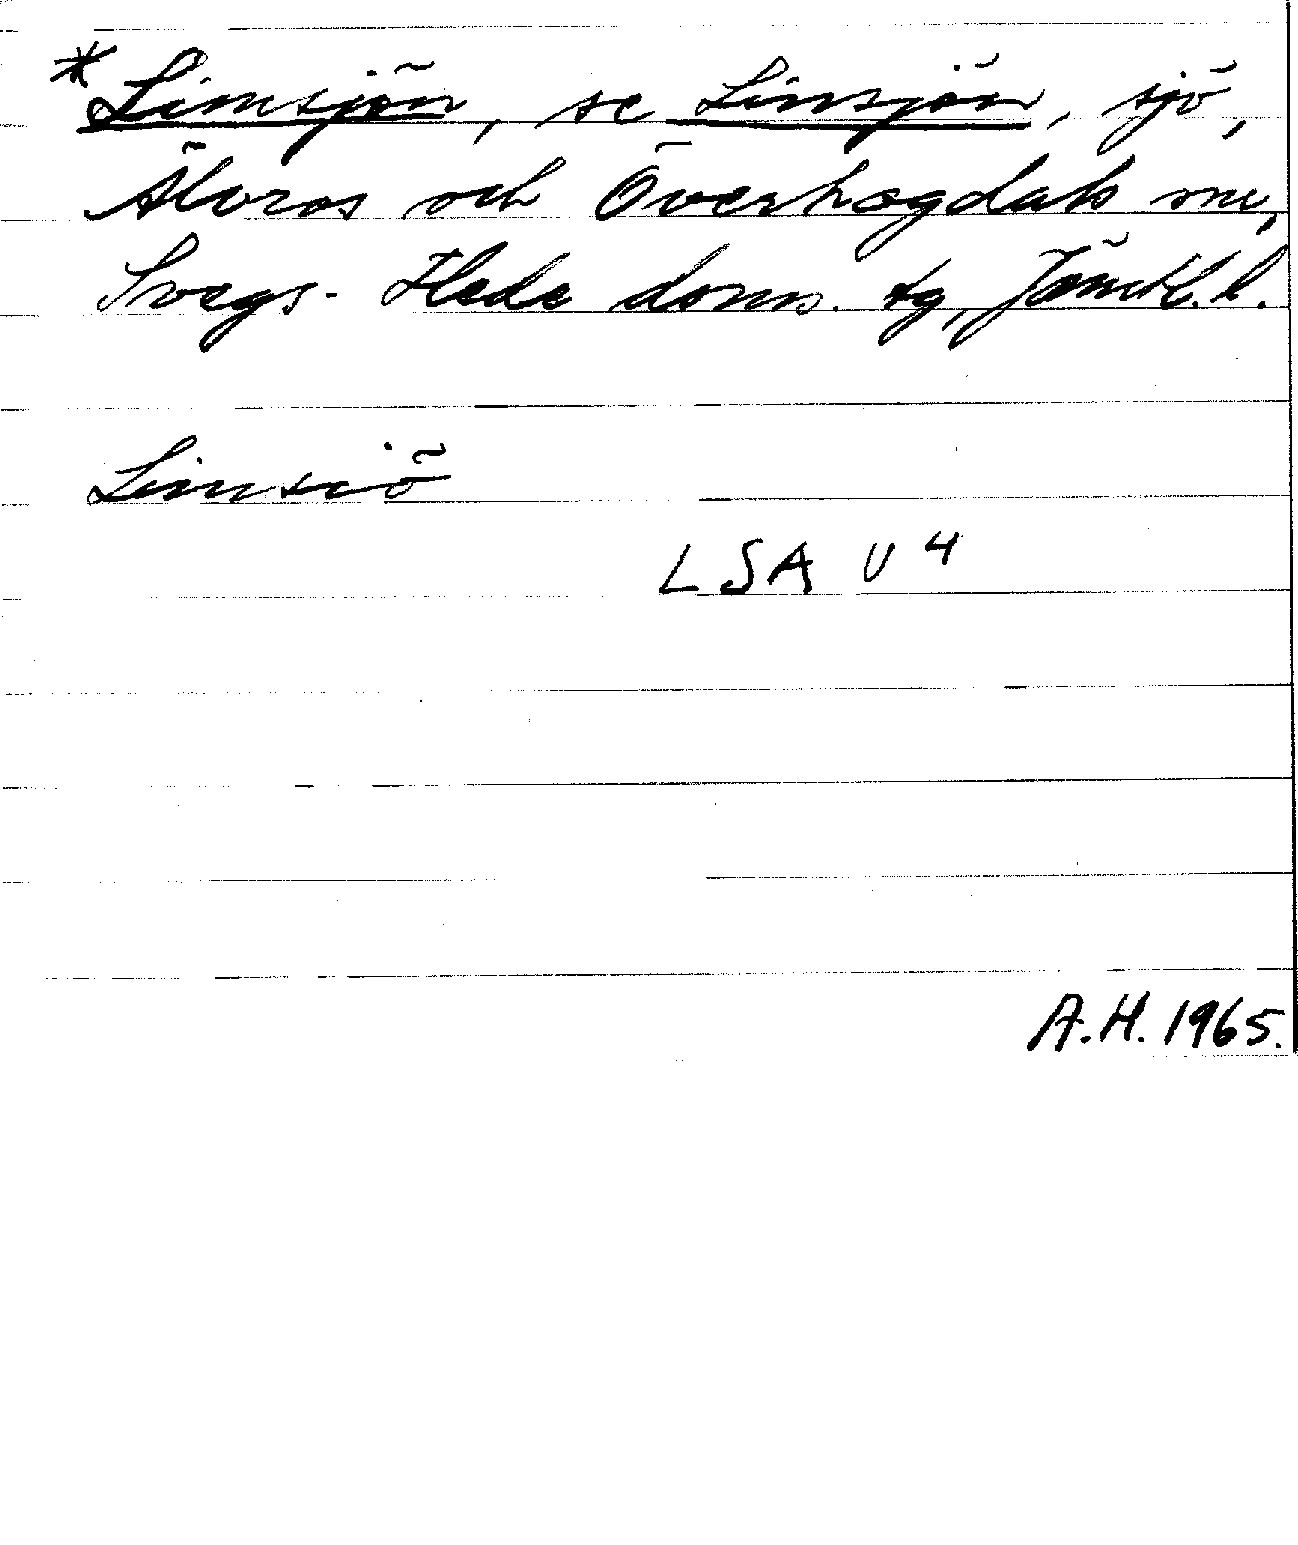 *Limsjön, se Linsjön, sjö,
Älvros och Överhogdals snr,
Svegs-Hede doms. tg, Jämtl. l.
Limsiö
LSA U4
A.H. 1965.